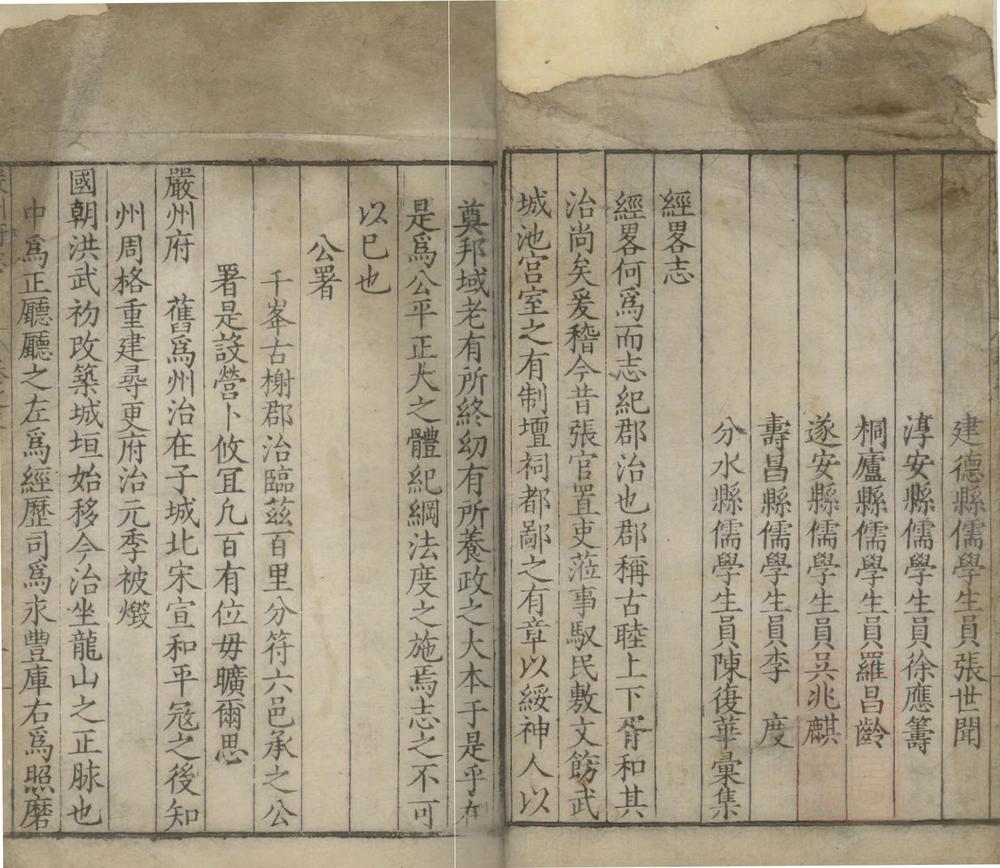 建德縣儒學生員張世聞
淳安縣儒學生員徐應籌
桐廬縣儒學生員羅昌齡
遂安縣儒學生員吳兆麒
壽昌縣儒學生員李　度
分水縣儒學生員陳復華彙集
經畧志
經畧何爲而志紀郡治也郡稱古睦上下胥和其
治尚矣爰稽今昔張官置吏蒞事馭民敷文飭武
城池宮室之有制壇祠都鄙之有章以綏神人以
奠邦域老有所終幼有所養政之大本于是乎在
是爲公平正大之體紀綱法度之施焉志之不可
以已也
公署
千峯古榭郡治臨茲百里分符六邑承之公
署是設營卜攸冝凢百有位毋曠爾思
嚴州府　舊爲州治在子城北宋宣和平冦之後知
州周格重建尋更府治元季被燬
國朝洪武初攺築城垣始移今治坐龍山之正脉也
中爲正廳廳之左爲經歷司爲永豐庫右爲照磨